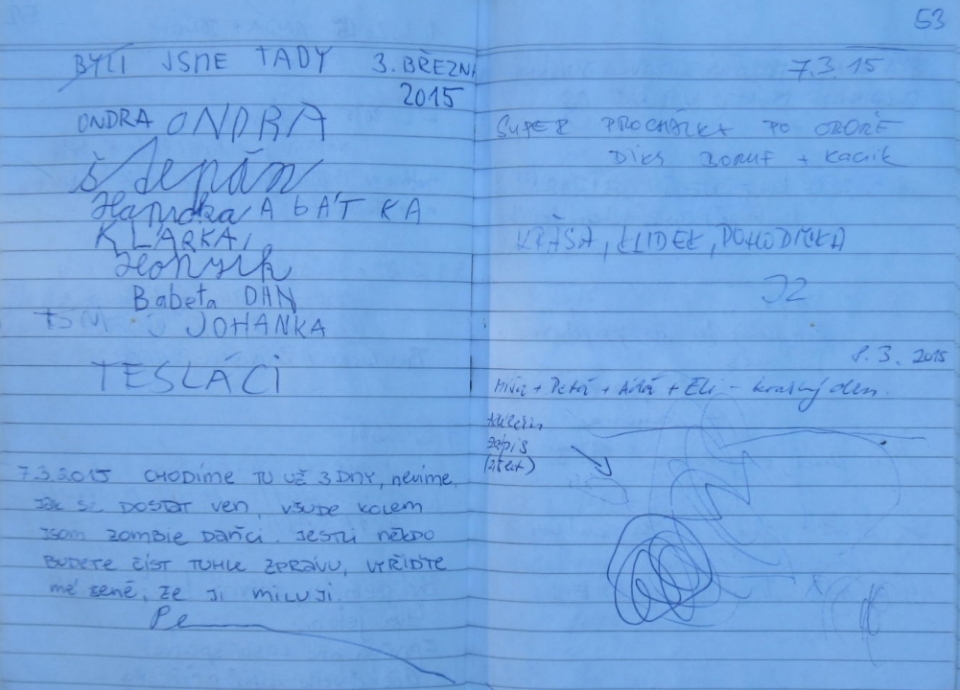 BYLI JSME TADY 3. BŘEZNA
2015
ONDRA ONDRA
Štěpán
Hanička A BÁŤKA
KLÁRKA,
Honzík
Babeta DAN
JOHANKA
TESLÁCI
7.3.2015 CHODÍME TU UŽ 3 DNY, nevíme
Jak se DOSTAT ven, všude kolem
jsou zombie daňci. Jestli někdo
BUDETE číst TUHLE ZPRÁVU, VYŘIĎTE
mé ženě, že JI MILUJI.
Pe
53
7.3.15
SUPER PROCHÁZKA PO OBOŘE
DIKS + Kačík
KRÁSA, KLIDEK, POHODIČKA
JZ
8. 3. 2015
Míša + Peťa + + Eli - krásný den.
zápis